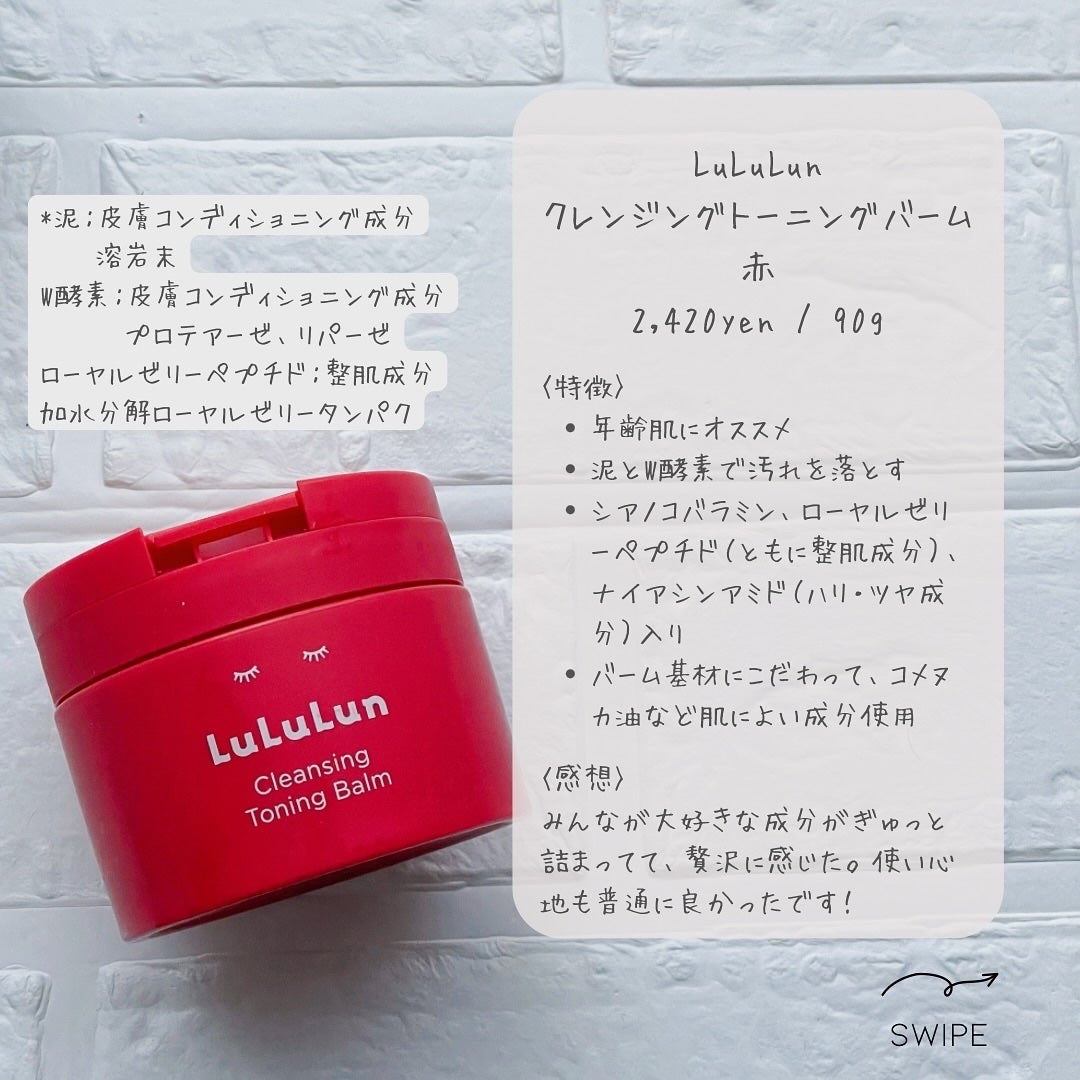 *泥;皮膚コンディショニング成分
溶岩末
W酵素;皮膚コンディショニング成分
プロテアーゼ、リパーゼ
ローヤルゼリーペプチド;整肌成分
加水分解ローヤルゼリータンパク
LuLuLun
クレンジングトーニングバーム
赤
2,420yen / 90g
〈特徴〉
• 年齢肌にオススメ
• 泥とW酵素で汚れを落とす
• シアノコバラミン、ローヤルゼリ
ーペプチド(ともに整肌成分)、
ナイアシンアミド(ハリ・ツヤ成
分)入り
• バーム基材にこだわって、コメヌ
カ油など肌によい成分使用
〈感想〉
みんなが大好きな成分がぎゅっと
詰まってて、贅沢に感じた。使い心
地も普通に良かったです!
LuLuLun
Cleansing
Toning Balm
SWIPE